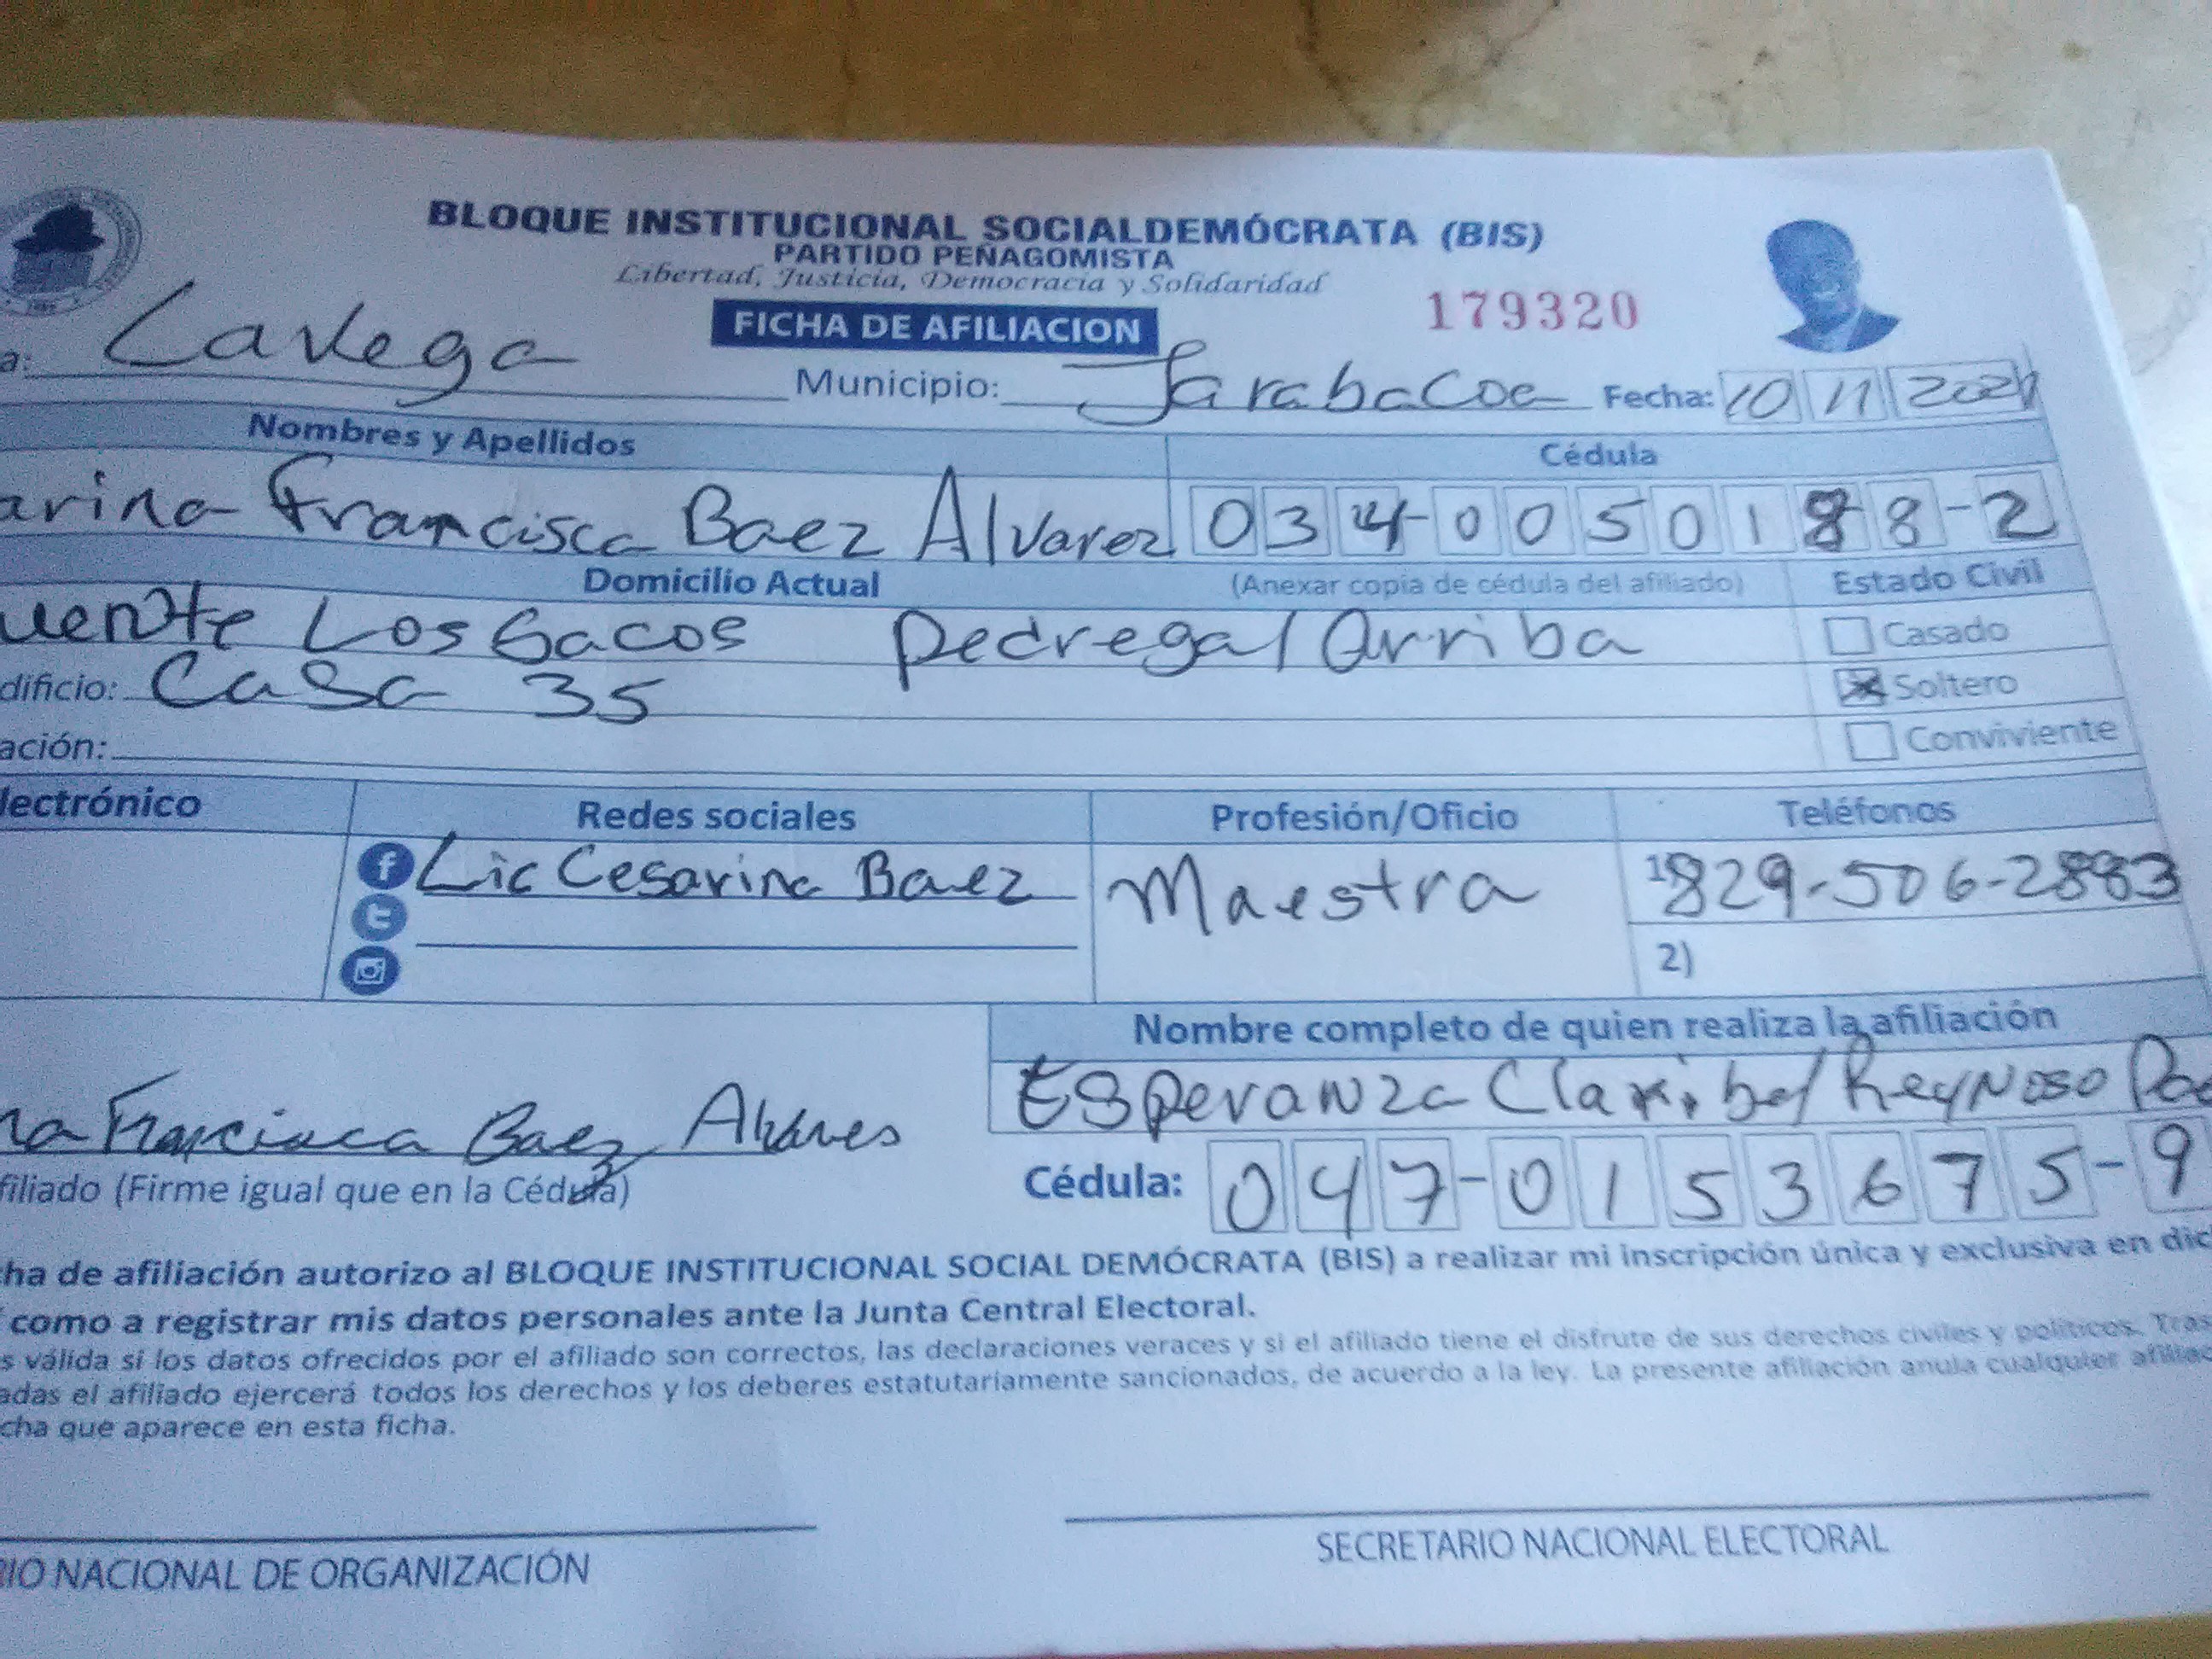 BLOQUE INSTITUCIONAL SOCIALDEMÓCRATA (BIS)
PARTIDO PEÑAGOMISTA
Libertad, Justicia, Democracia y Solidaridad
FICHA DE AFILIACION 179320
a: La Vega Municipio: Jarabacoa Fecha: 10 11 2021
Nombres y Apellidos Cédula
arina Francisca Baez Alvarez 034-0050188-2
Domicilio Actual (Anexar copia de cédula del afiliado) Estado Civil
uente Los Gacos Pedregal Arriba Casado
dificio: Casa 35 Soltero
ación: Conviviente
lectrónico Redes sociales Profesión/Oficio Teléfonos
Lic Cesarina Baez Maestra 829-506-2883
2)
Nombre completo de quien realiza la afiliación
na Francisca Baez Alvares Esperanza Claribel Reynoso
filiado (Firme igual que en la Cédula) Cédula: 047-0153675-9
ha de afiliación autorizo al BLOQUE INSTITUCIONAL SOCIAL DEMÓCRATA (BIS) a realizar mi inscripción única y exclusiva en dic
como a registrar mis datos personales ante la Junta Central Electoral.
s válida si los datos ofrecidos por el afiliado son correctos, las declaraciones veraces y si el afiliado tiene el disfrute de sus derechos civiles y políticos. Tras
adas el afiliado ejercerá todos los derechos y los deberes estatutariamente sancionados, de acuerdo a la ley. La presente afiliación anula cualquier afiliac
cha que aparece en esta ficha.
RIO NACIONAL DE ORGANIZACIÓN SECRETARIO NACIONAL ELECTORAL